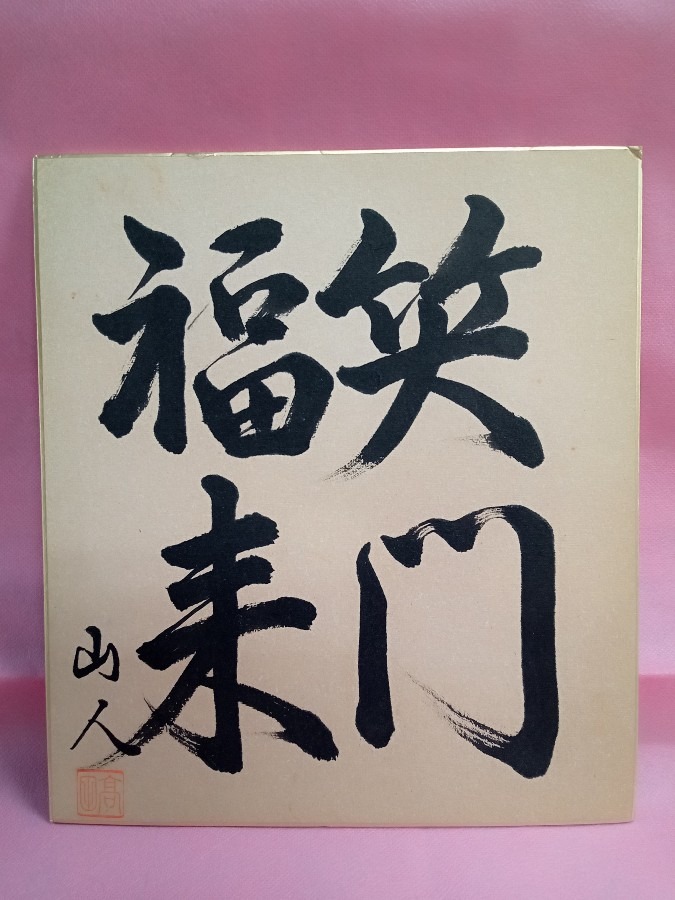 笑門
福来
山人